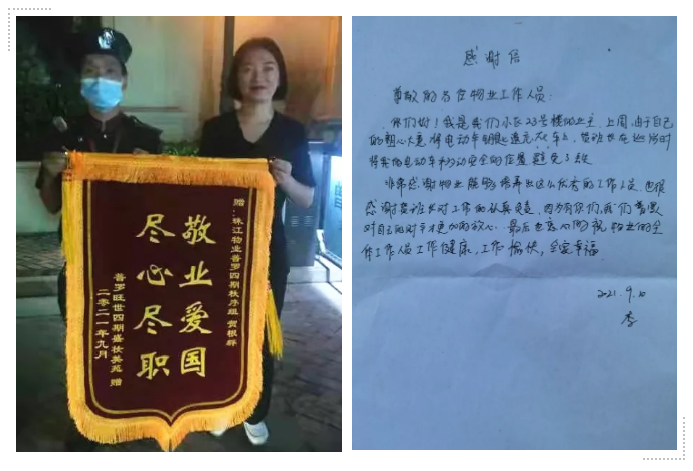 赠：珠江物业普罗四期秩序组 贺根群
敬业爱国
尽心尽职
普罗旺世四期盛妆美苑 赠
二零二一年九月
感谢信
尊敬的各位物业工作人员：
你们好！我是我们小区23号楼的业主，上周，由于自己
的粗心大意，将电动车钥匙遗忘在车上，贺班长在巡逻时
将我的电动车移动安全的位置，避免了丢
非常感谢物业能够培养出这么优秀的工作人员，也很
感谢贺班长对工作的认真负责，因为有你们，我们
对自己的更加的放心。最后衷心的祝物业的全
体工作人员工作健康，工作愉快，全家幸福
2021.9.10
李